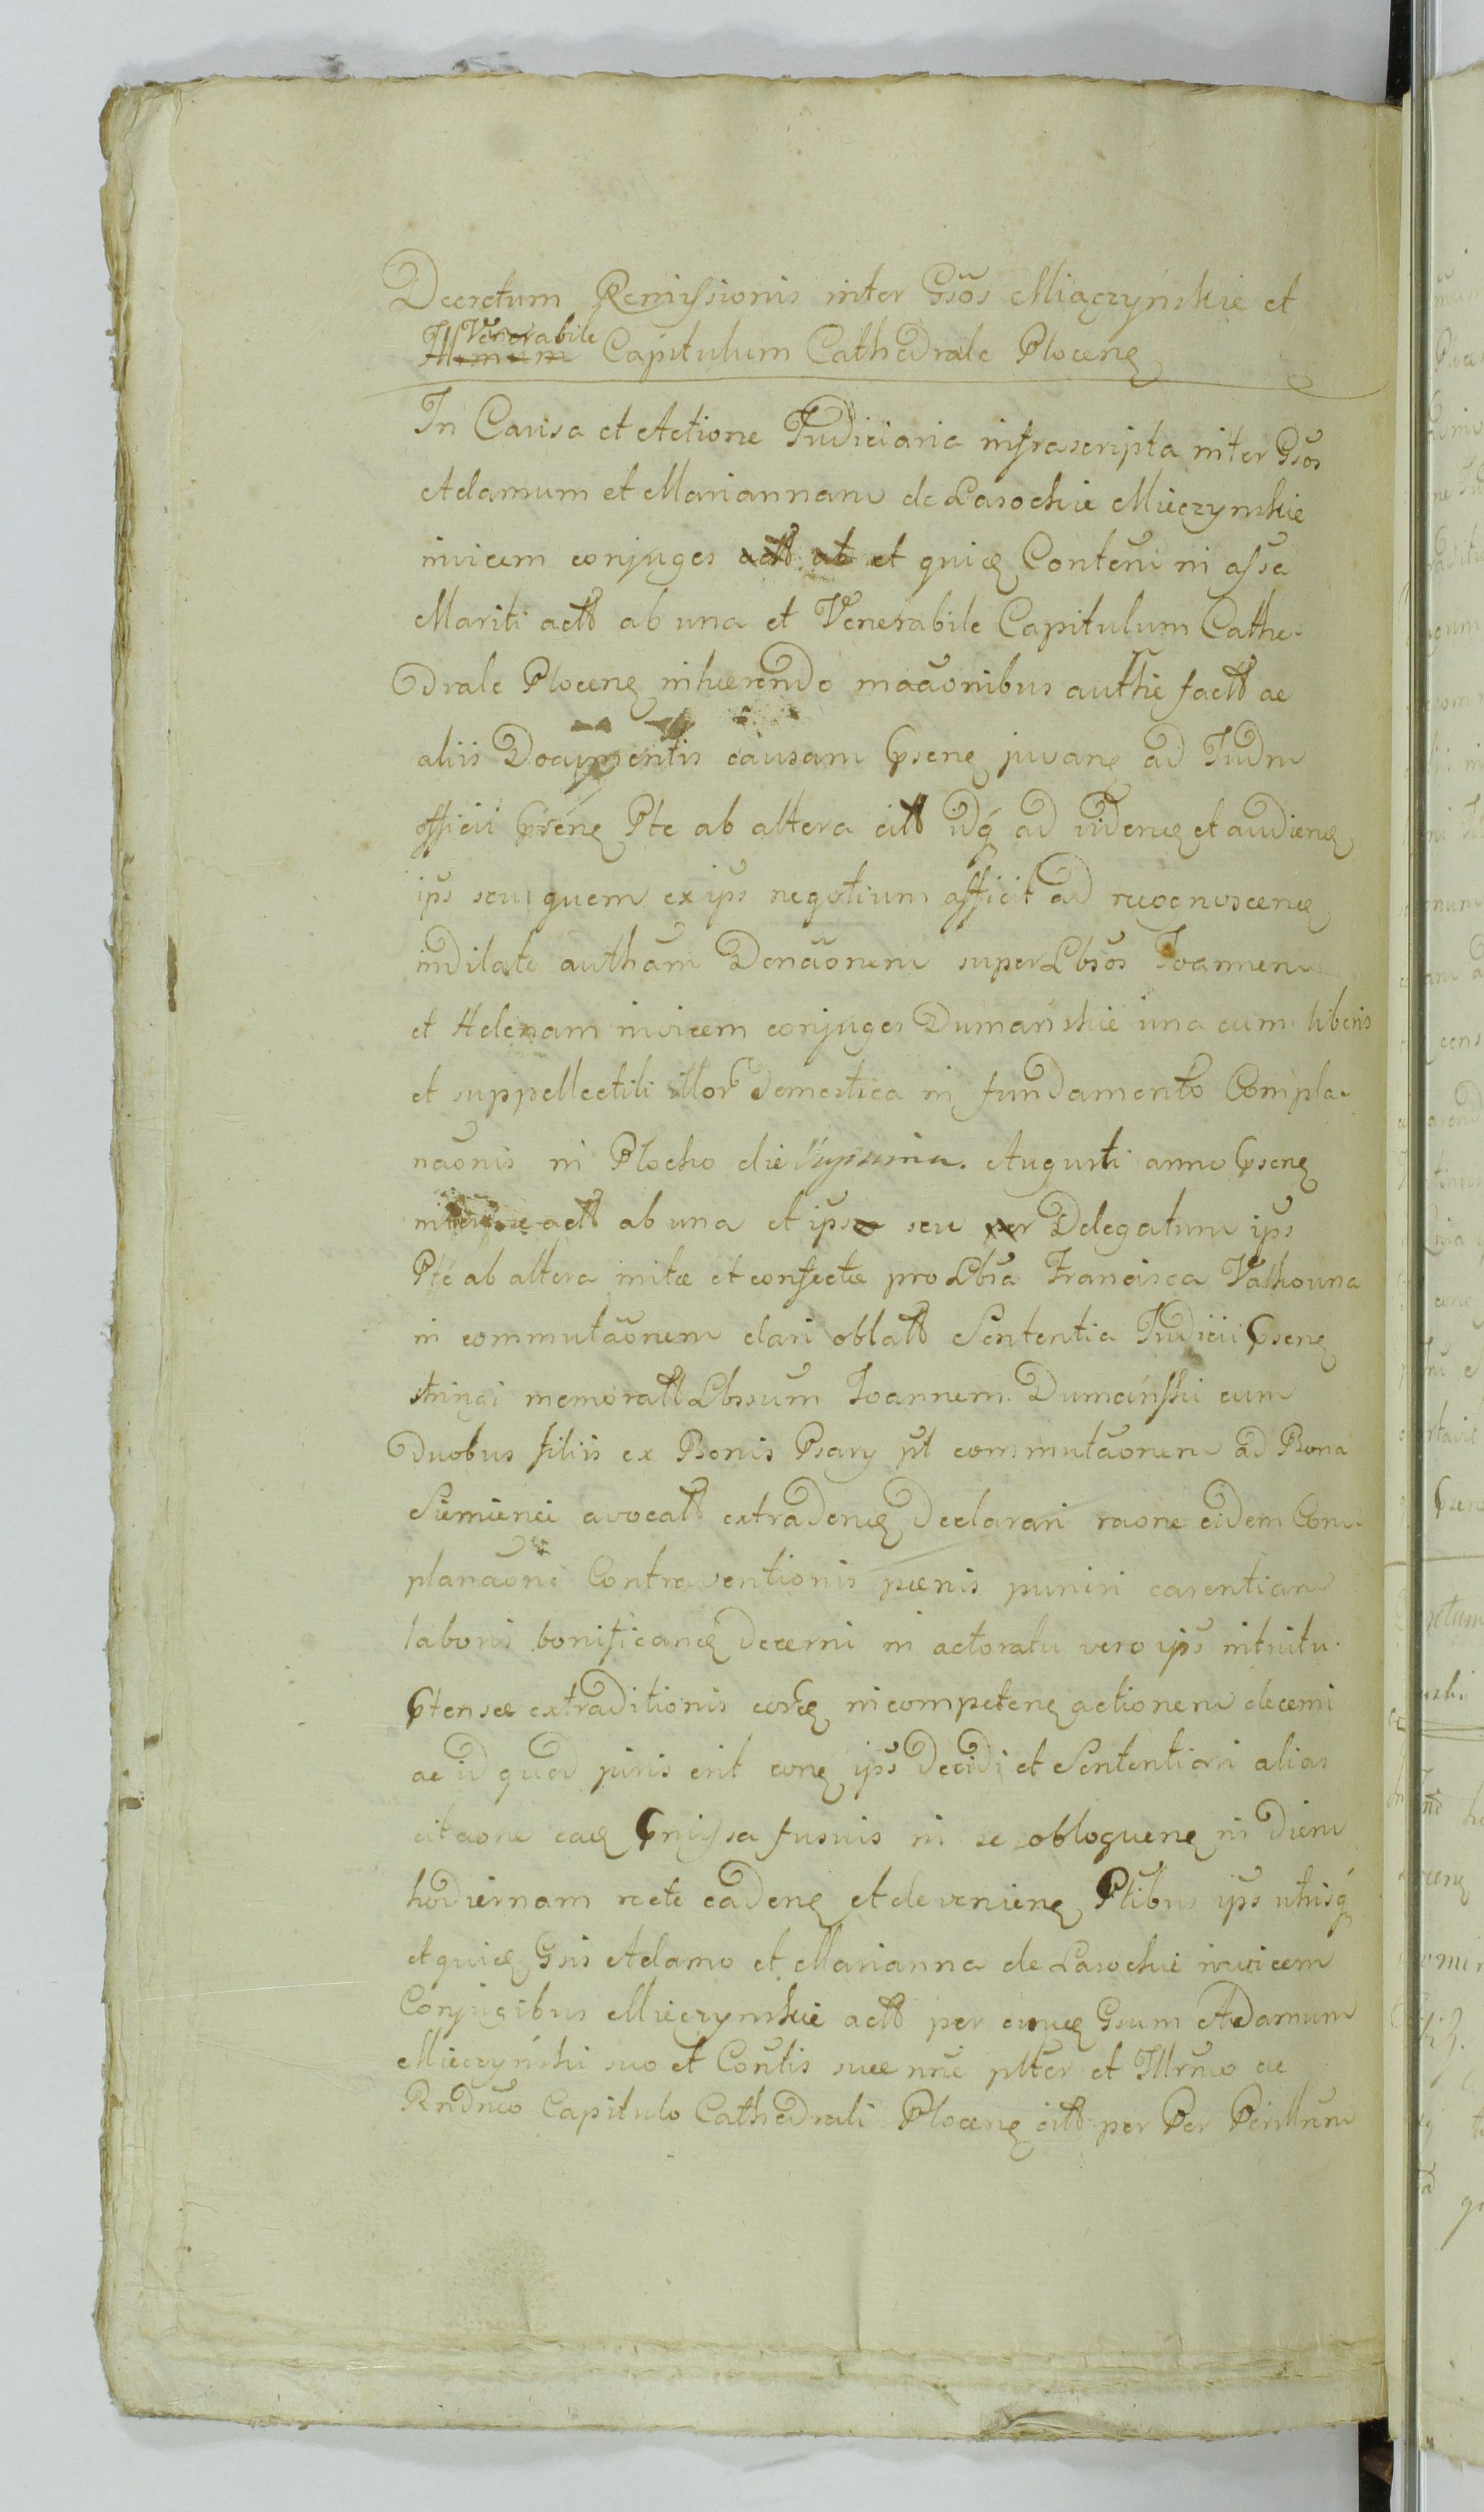 Decretum Remissionis inter Gsõs Miączyńskie et
Venerabile
Illmum Capitulum Cathedrale Plocens
In Causa et Actione Judiciaria infrascripta inter Gsõs
Adamum et Mariannam de Lasockie Mięczynskie
invicem conjuges et quidem Conten in assa
Mariti actt ab una et Venerabile Capitulum Cathe-
drale Plocens inhærendo mãonibus authie factt ac
aliis Documentis causam pñsens juvans ad Judm
officii pñsens Pte ab altera citt idq ad videnđ et audienđ
ips seu quem ex ips negotium afficit ad recognoscenđ
indilate autham Donãonem super Lbsõs Joannem
et Helenam invicem conjuges Dumańskie una cum liberis
et suppellectili illor domestica in fundamento Compla-
nãonis in Plocko die Augusti anno pñsens
actt ab una et ips seu per Delegatum ips
Pte ab altera initæ et confectæ pro Lbsa Francisca Valkouna
in commutãonem dari oblatt Sententia Judicii pñsens
stringi memoratt Lbssum Joannem Dumański cum
Duobus filiis ex Bonis Psary pt commutãonem ad Bona
Siemienci avocatt extradenđ declarari raõne eidem Com-
planãoni Contraventionis pænis puniri carentiam
laboris bonificanđ decerni in actoratu vero ips intuitu
ptensæ extraditionis incompetens actionem decerni
ac id quod juris erit ips Decidi et Sententiari alias
citaõne eađ pmissa fusius in se obloquens in diem
hodiernam recte cadens et deveniens Ptibus ips utrisq
et quiđ Gsis Adamo et Marianna de Lasockie invicem
Conjugibus Mięczynskie actt per eunđ Gsum Adamum
Mięczyński suo et Contis suæ nñe plter et Illrmo ac
Rndmo Capitulo Cathedrali Plocens citt per Per Perillrum